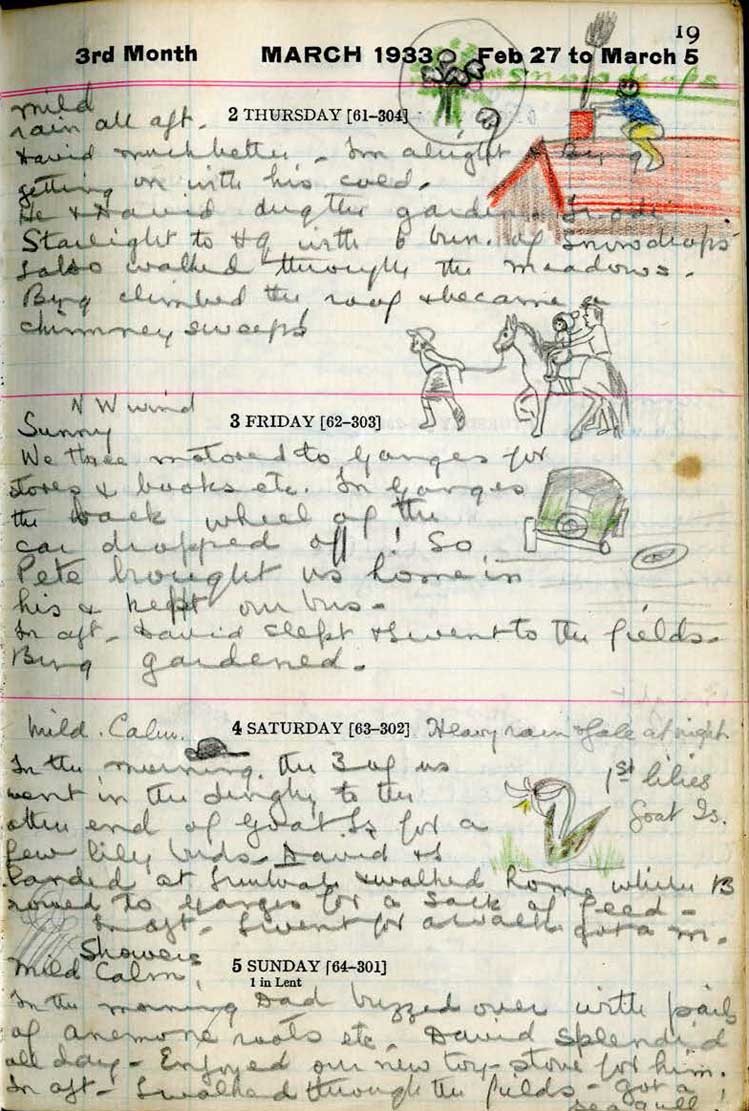 19
3rd Month MARCH 1933 Feb 27 to March 5
Snowdrops
mild
rain all aft. 2 THURSDAY [61-304]
David much better. I'm alright & Byng
getting on with his cold.
He & David dug the garden. I rode
Starlight to HQ with 6 bun. of Snowdrops
I also walked through the meadows.
Byng climbed the roof & became a
chimney sweep!
N W wind
Sunny 3 FRIDAY [62-303]
We three motored to Ganges for
stores & books etc. In Ganges
the back wheel of the
car dropped off! So
Pete brought us home in
his & kept our bus.
In aft. David slept & I went to the fields.
Byng gardened.
Mild. Calm. 4 SATURDAY [63-302] Heavy rain & gale at night
In the morning the 3 of us
went in the dinghy to the
other end of Goat Is for a
few lily buds. David & I
landed at & walked home while B
rowed to Ganges for a sack of feed -
In aft. I went for a walk got a m.
1st lilies
Goat Is.
Showers
Mild Calm 5 SUNDAY [64-301]
1 in Lent
In the morning Dad buzzed over with pails
of anemone roots etc. David splendid
all day - Enjoyed our new toy-stove for him.
In aft - I walked through the fields - got a
seagull.